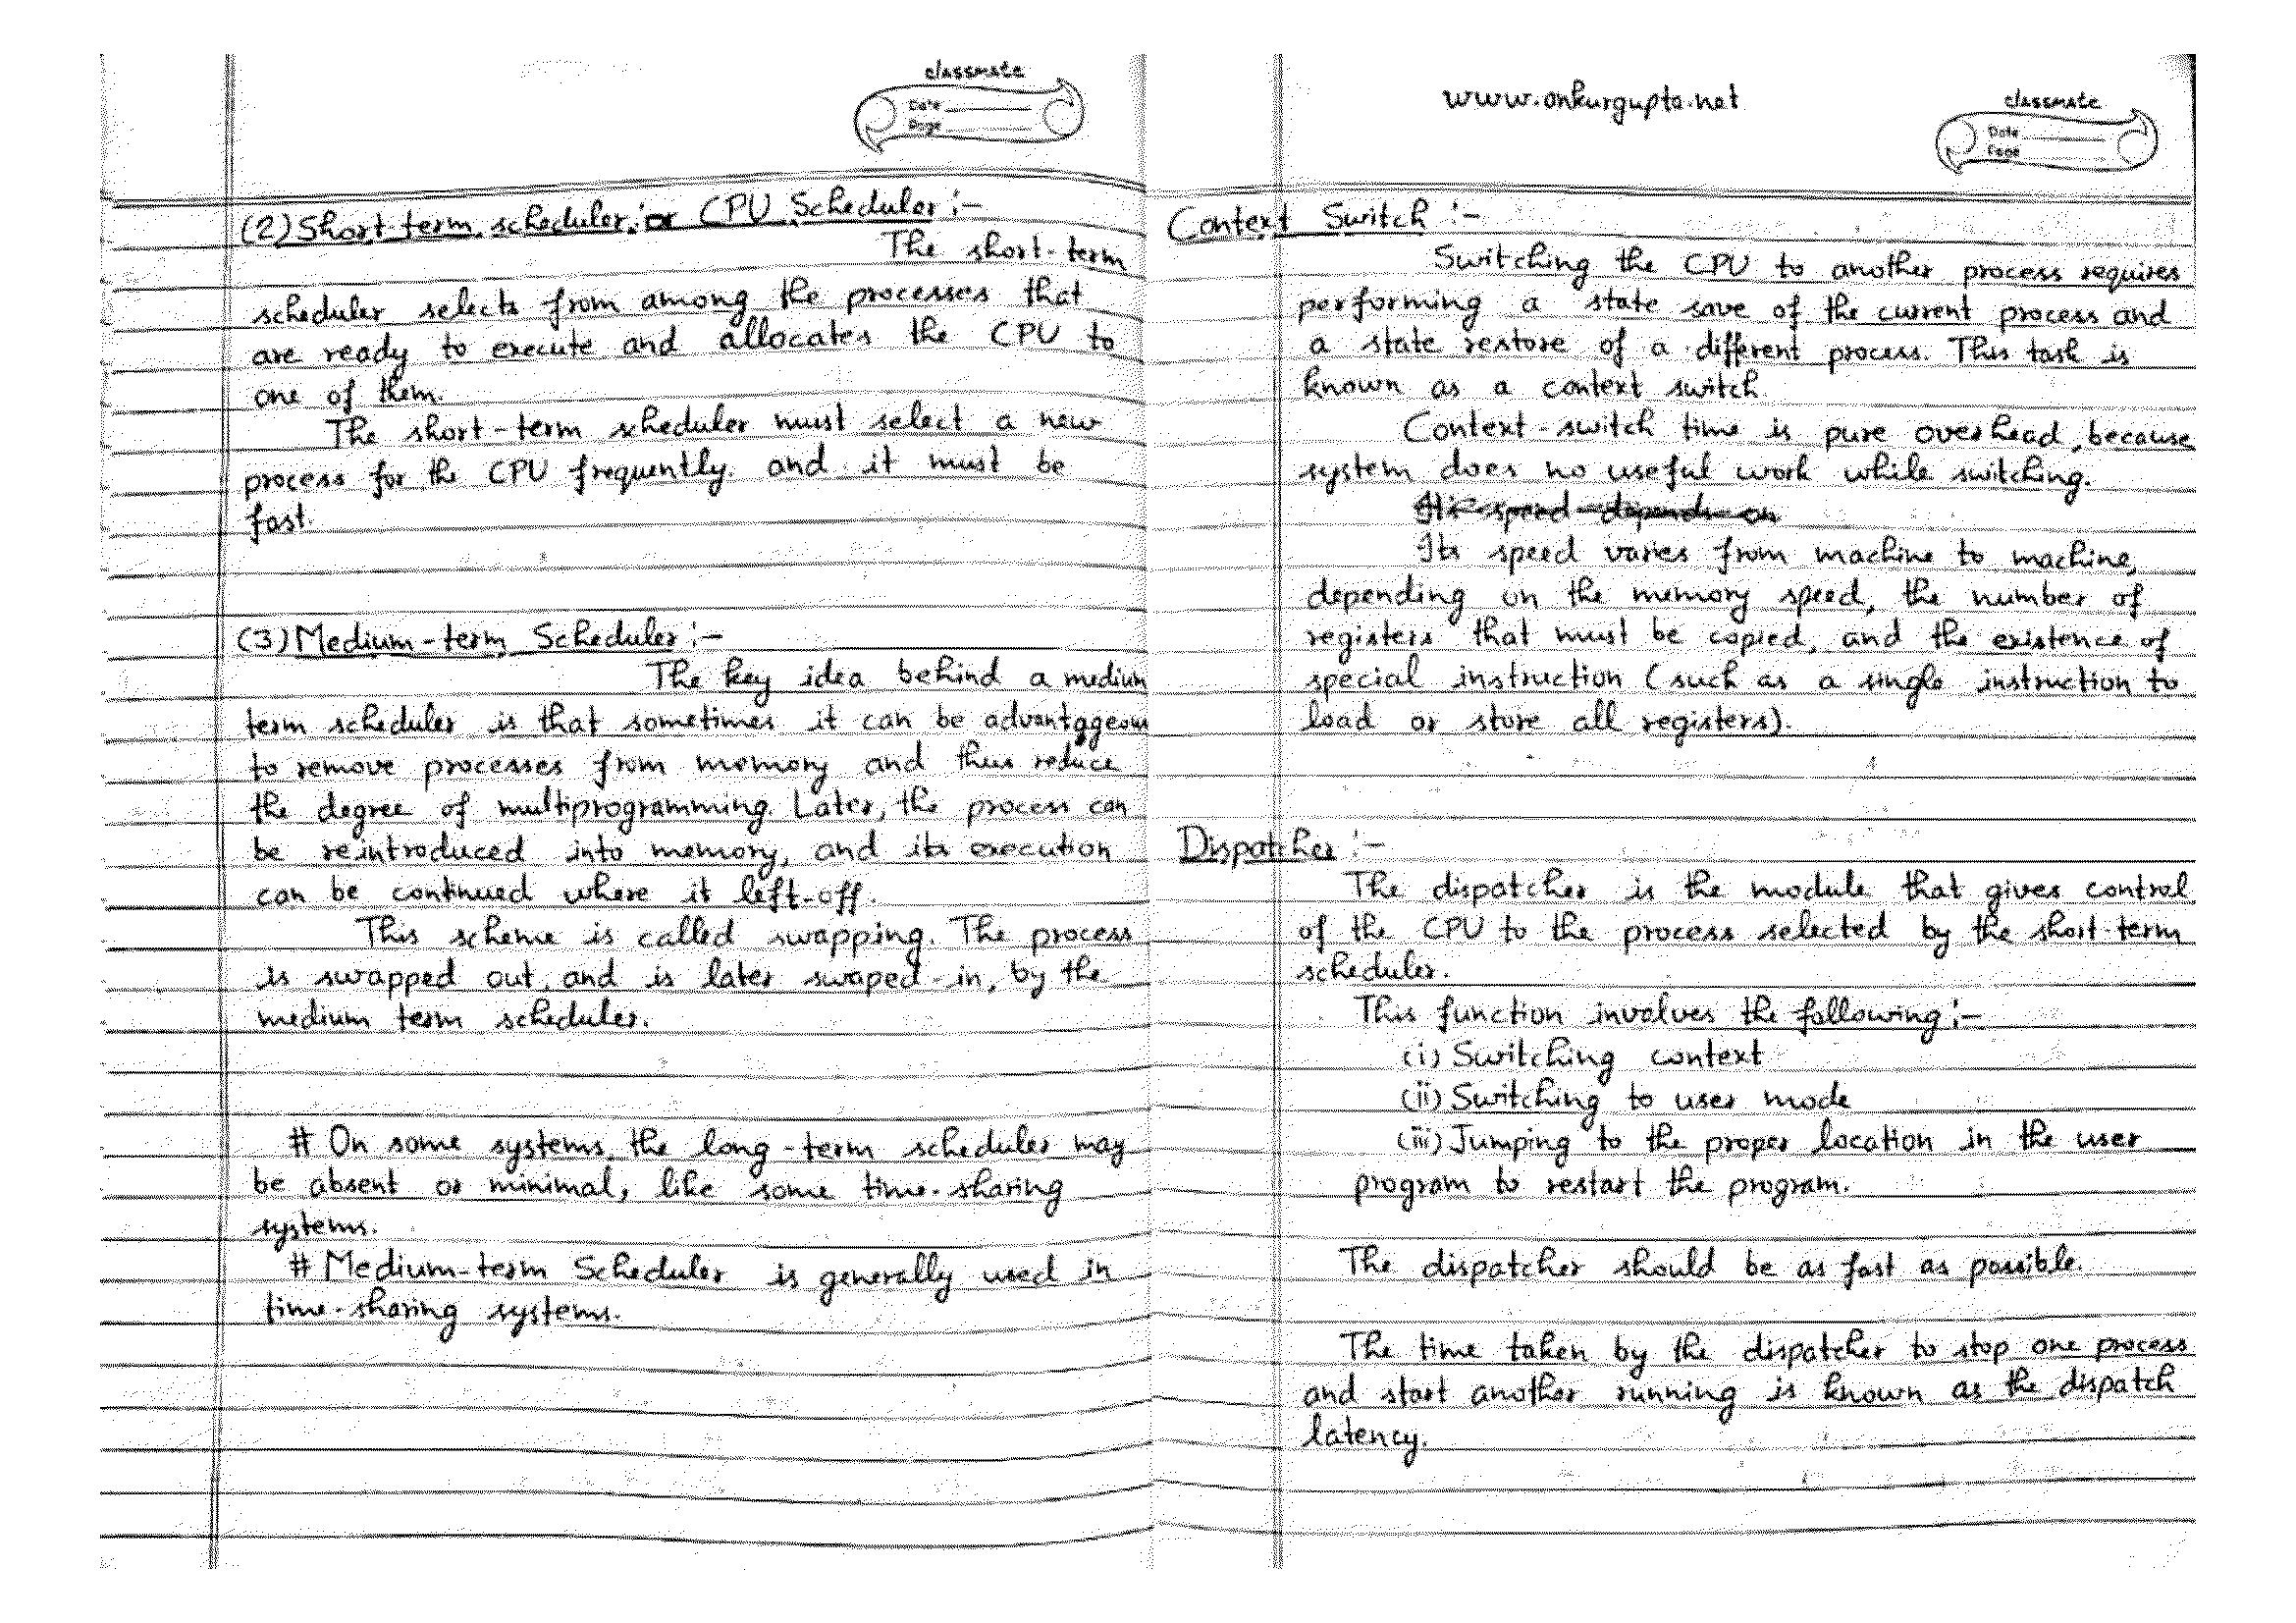 classmate
Date
Page
(2) Short term scheduler or CPU Scheduler :-
The short-term
scheduler selects from among the processes that
are ready to execute and allocates the CPU to
one of them.
The short-term scheduler must select a new
process for the CPU frequently and it must be
fast.
(3) Medium-term Scheduler :-
The key idea behind a medium
term scheduler is that sometimes it can be advantageous
to remove processes from memory and thus reduce
the degree of multiprogramming. Later, the process can
be reintroduced into memory, and its execution
can be continued where it left-off.
This scheme is called swapping. The process
is swapped out, and is later swaped-in, by the
medium term scheduler.
# On some systems, the long-term scheduler may
be absent or minimal, like some time-sharing
systems.
# Medium-term Scheduler is generally used in
time-sharing systems.
www.onkurgupta.net
classmate
Date
Page
Context Switch :-
Switching the CPU to another process requires
performing a state save of the current process and
a state restore of a different process. This task is
known as a context switch.
Context-switch time is pure overhead, because
system does no useful work while switching.
speed depends on
Its speed varies from machine to machine,
depending on the memory speed, the number of
registers that must be copied, and the existence of
special instruction (such as a single instruction to
load or store all registers).
Dispatcher :-
The dispatcher is the module that gives control
of the CPU to the process selected by the short-term
scheduler.
This function involves the following :-
(i) Switching context
(ii) Switching to user mode
(iii) Jumping to the proper location in the user
program to restart the program.
The dispatcher should be as fast as possible.
The time taken by the dispatcher to stop one process
and start another running is known as the dispatch
latency.